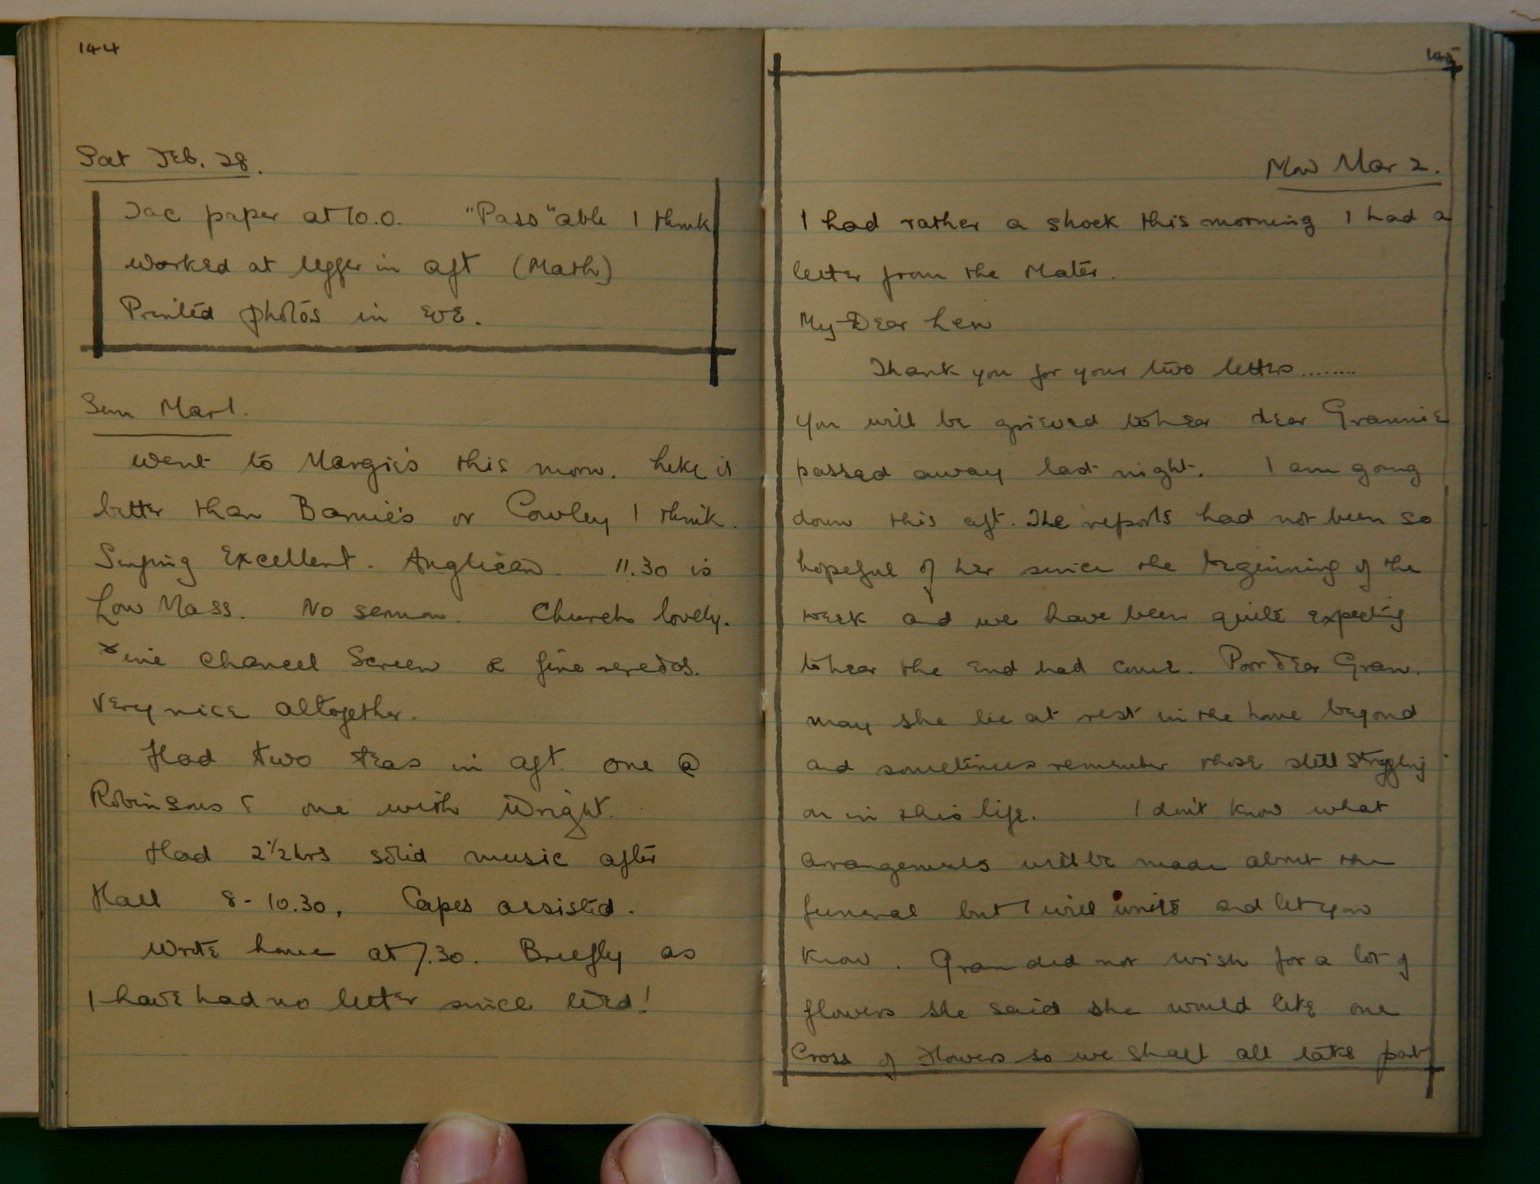 144
Sat Feb. 28.
Tac paper at 10.0. "Pass"able I think
Worked at legger in aft (Math)
Printed photos in eve.
Sun Mar 1.
Went to Margie's this morn. Like it
better than Barnie's or Cowley I think.
Singing Excellent. Anglican. 11.30 is
Low Mass. No sermon. Church lovely.
Fine Chancel Screen & fine reredos.
Very nice altogether.
Had two teas in aft. one @
Robinsons & one with Wright.
Had 2½hrs solid music after
Hall 8-10.30, Capes assisted.
Wrote home at 7.30. Briefly as
I have had no letter since Wed!
145
Mon Mar 2.
I had rather a shock this morning I had a
letter from the Mater.
My Dear Len
Thank you for your two letters........
You will be grieved to hear dear Grannie
passed away last night. I am going
down this aft. The reports had not been so
hopeful of her since the beginning of the
week and we have been quite expecting
to hear the end had come. Poor dear Gran.
may she lie at rest in the home beyond
and sometimes remember those still struggling
on in this life. I don't know what
arrangements will be made about the
funeral but I will write and let you
know. Gran did not wish for a lot of
flowers she said she would like one
Cross of Flowers so we shall all take part